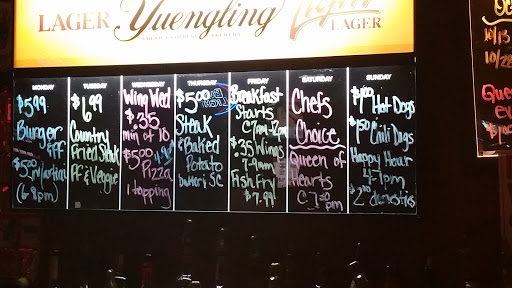 LAGER Yuengling Light LAGER
MONDAY
$5.99
Burger
& FF
$5.00 Martini
(6-8pm)
TUESDAY
$6.99
Country
Fried Steak
FF & Veggie
WEDNESDAY
Wing Wed
.35
min of 10
$5.00
Pizza
1 topping
THURSDAY
$5.00
Steak
& Baked
Potato
butter & SC
FRIDAY
Breakfast
Starts
@7am-12pm
.35 Wings
7-9pm
Fish Fry
$7.99
SATURDAY
Chefs
Choice
Queen of
Hearts
@7:30
pm
SUNDAY
$1.00 Hot Dogs
$1.50 Chili Dogs
Happy Hour
4-7pm
$2.00 domestics
10/13
10/28